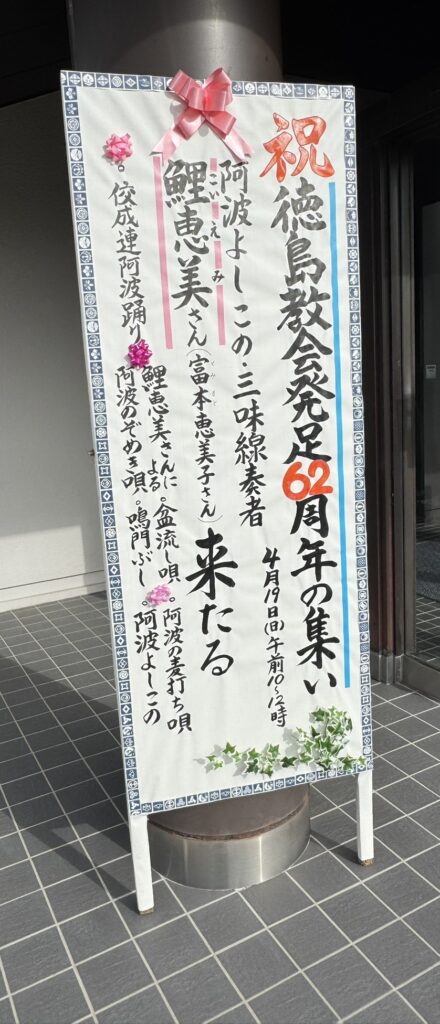 祝 徳島教会発足62周年の集い
4月19日(日)午前10〜12時
阿波よしこの・三味線奏者
鯉恵美さん(富本恵美子さん)来たる
こい え み
。佼成連阿波踊り
鯉恵美さんによる。盆流し唄。阿波の麦打ち唄
阿波のぞめき唄。鳴門ぶし。阿波よしこの